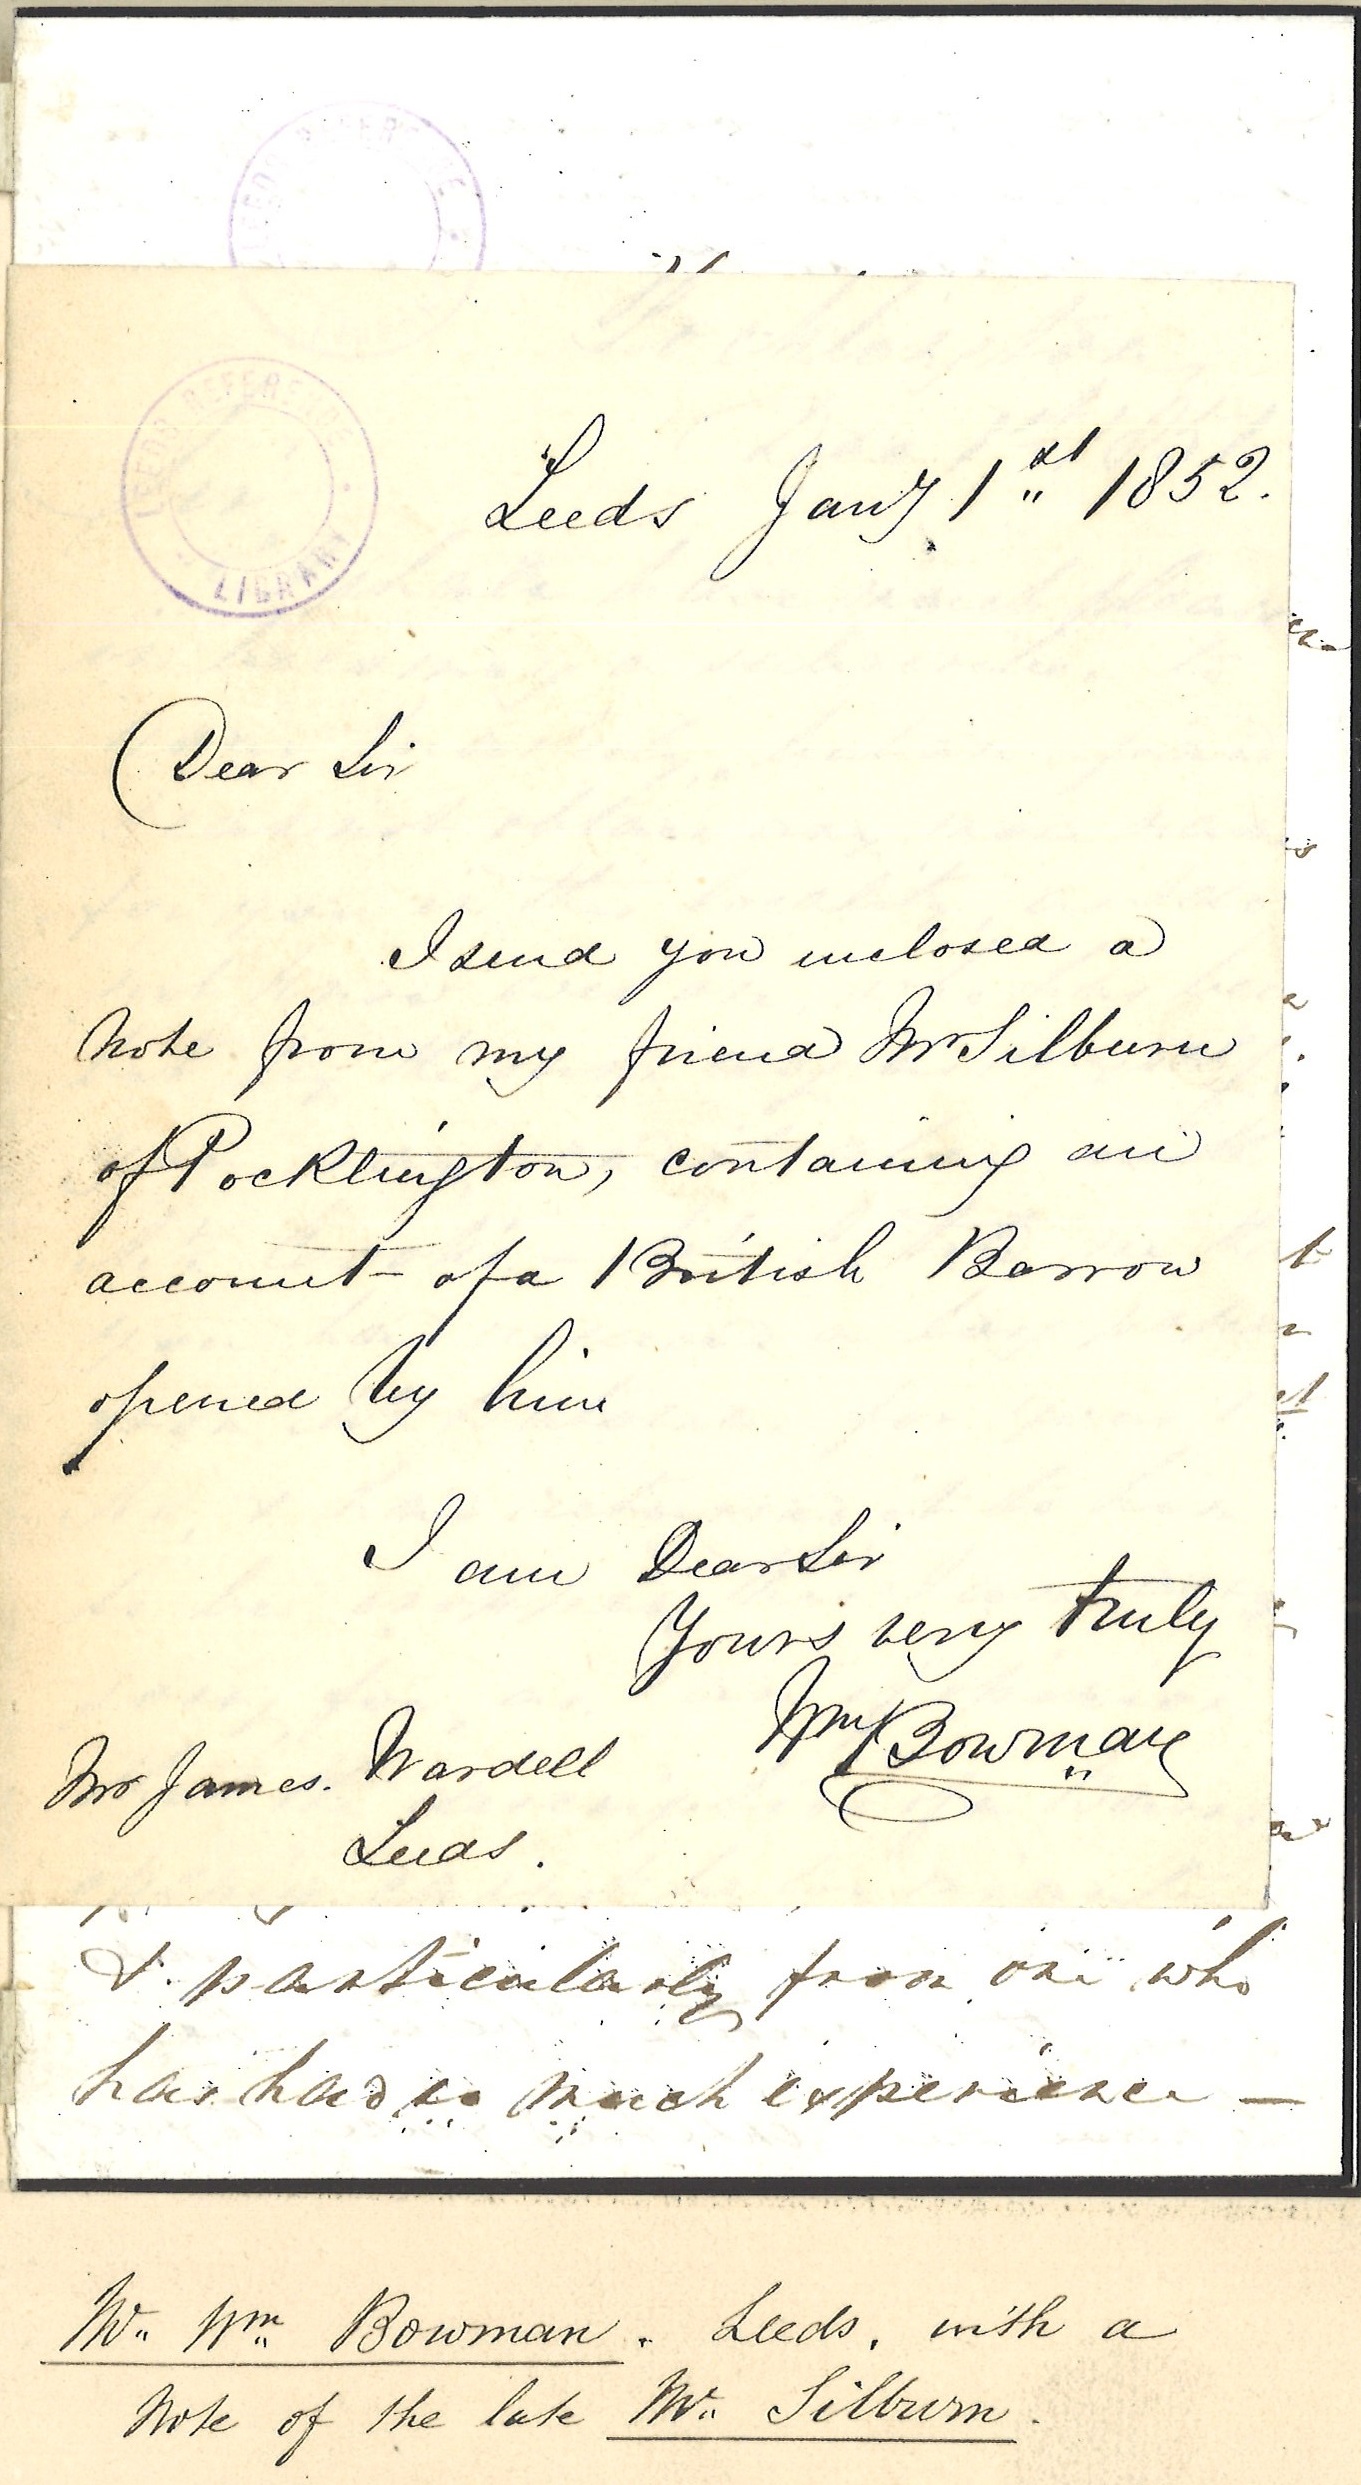 LEEDS REFERENCE LIBRARY
Leeds Jany 1st 1852.
Dear Sir
I send you inclosed a
Note from my friend Mr Silburn
of Pocklington, containing an
account of a British Barrow
opened by him
I am Dear Sir
Yours very truly
Wm Bowman
Mr James. Wardell
Leeds.
& particularly from one who
has had so much experience —
Mr. Wm. Bowman. Leeds. with a
Note of the late Mr. Silburn.